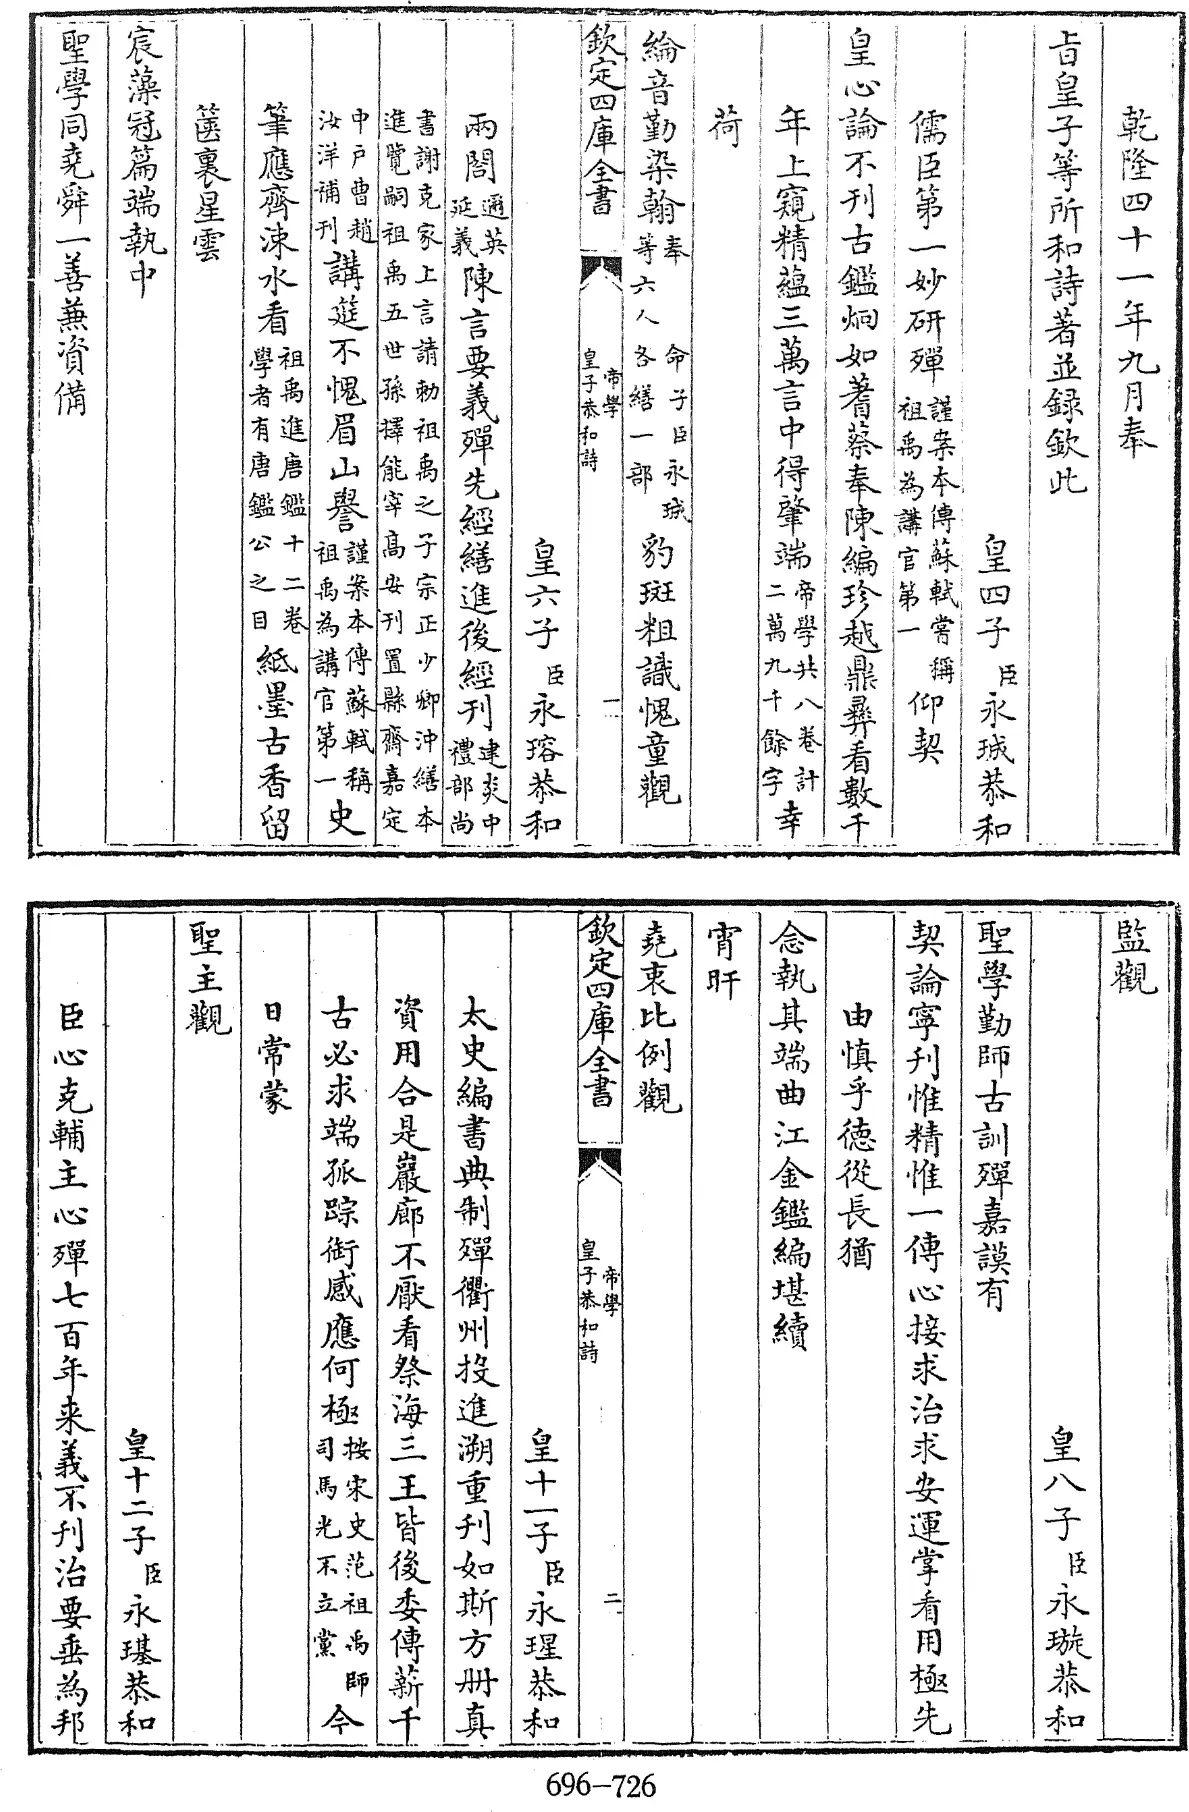 乾隆四十一年九月奉
旨皇子等所和詩著並録欽此
皇四子臣永珹恭和
儒臣第一妙研殫謹案本傳蘇軾嘗稱祖禹為講官第一仰契
皇心論不刊古鑑炯如蓍蔡奉陳編珍越鼎彞看數千
年上窺精藴三萬言中得肇端帝學共八卷計二萬九千餘字幸
荷
綸音勤染翰奉命子臣永珹等六人各繕一部豹斑粗識愧童觀
欽定四庫全書
帝學
皇子恭和詩
一
皇六子臣永瑢恭和
兩閣邇英延義陳言要義殫先經繕進後經刊建炎中禮部尚
書謝克家上言請勅祖禹之子宗正少卿沖繕本進覽嗣祖禹五世孫擇能宰高安刊置縣齋嘉定
中戶曹趙汝洋補刊講筵不愧眉山譽謹案本傳蘇軾稱祖禹為講官第一史
筆應齊涑水看祖禹進唐鑑十二卷學者有唐鑑公之目紙墨古香留
篋裏星雲
宸藻冠篇端執中
聖學同堯舜一善兼資備
監觀
皇八子臣永璇恭和
聖學勤師古訓殫嘉謨有
契論寧刊惟精惟一傳心接求治求安運掌看用極先
由慎乎德從長猶
念執其端曲江金鑑編堪續
宵旰
堯衷比例觀
欽定四庫全書
帝學
皇子恭和詩
二
皇十一子臣永瑆恭和
太史編書典制殫衢州投進溯重刊如斯方冊真
資用合是巖廊不厭看祭海三王皆後委傳薪千
古必求端孤踪銜感應何極按宋史范祖禹師司馬光不立黨今
日常蒙
聖主觀
皇十二子臣永璂恭和
臣心克輔主心殫七百年来義不刊治要垂為邦
696-726